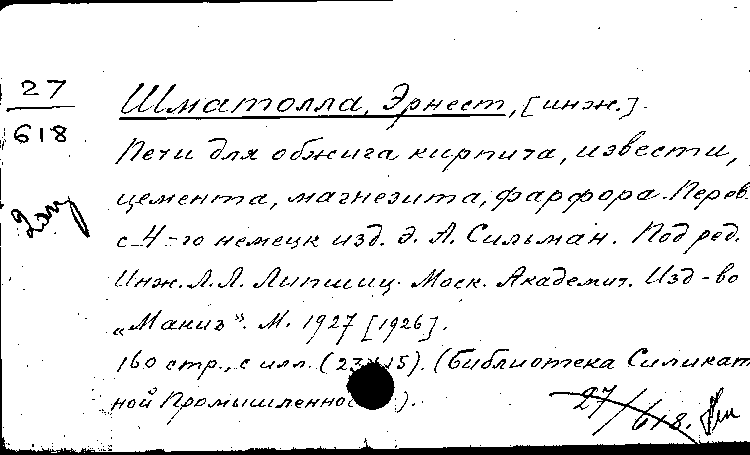 27
618
2 экз
Шматолла, Эрнест, [инж.].
Печи для обжига кирпича, извести,
цемента, магнезита, фарфора. Перев.
с 4-го немецк изд. Э. А. Сильман. Под ред.
Инж. Л. Л. Липшиц. Моск. Академич. Изд-во
„Макиз". М. 1927 [1926].
160 стр., с илл. (23х15). (Библиотека Силикат
ной Промышленнос ).
27/618.